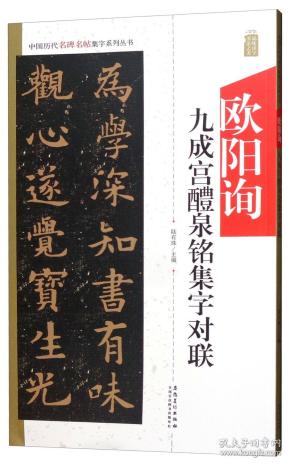 中国历代名碑名帖集字系列丛书
為學深知書有味
觀心遂覺寶生光
欧阳询
九成宫醴泉铭集字对联
陆有珠/主编
安徽美术出版社
孔夫子旧书网